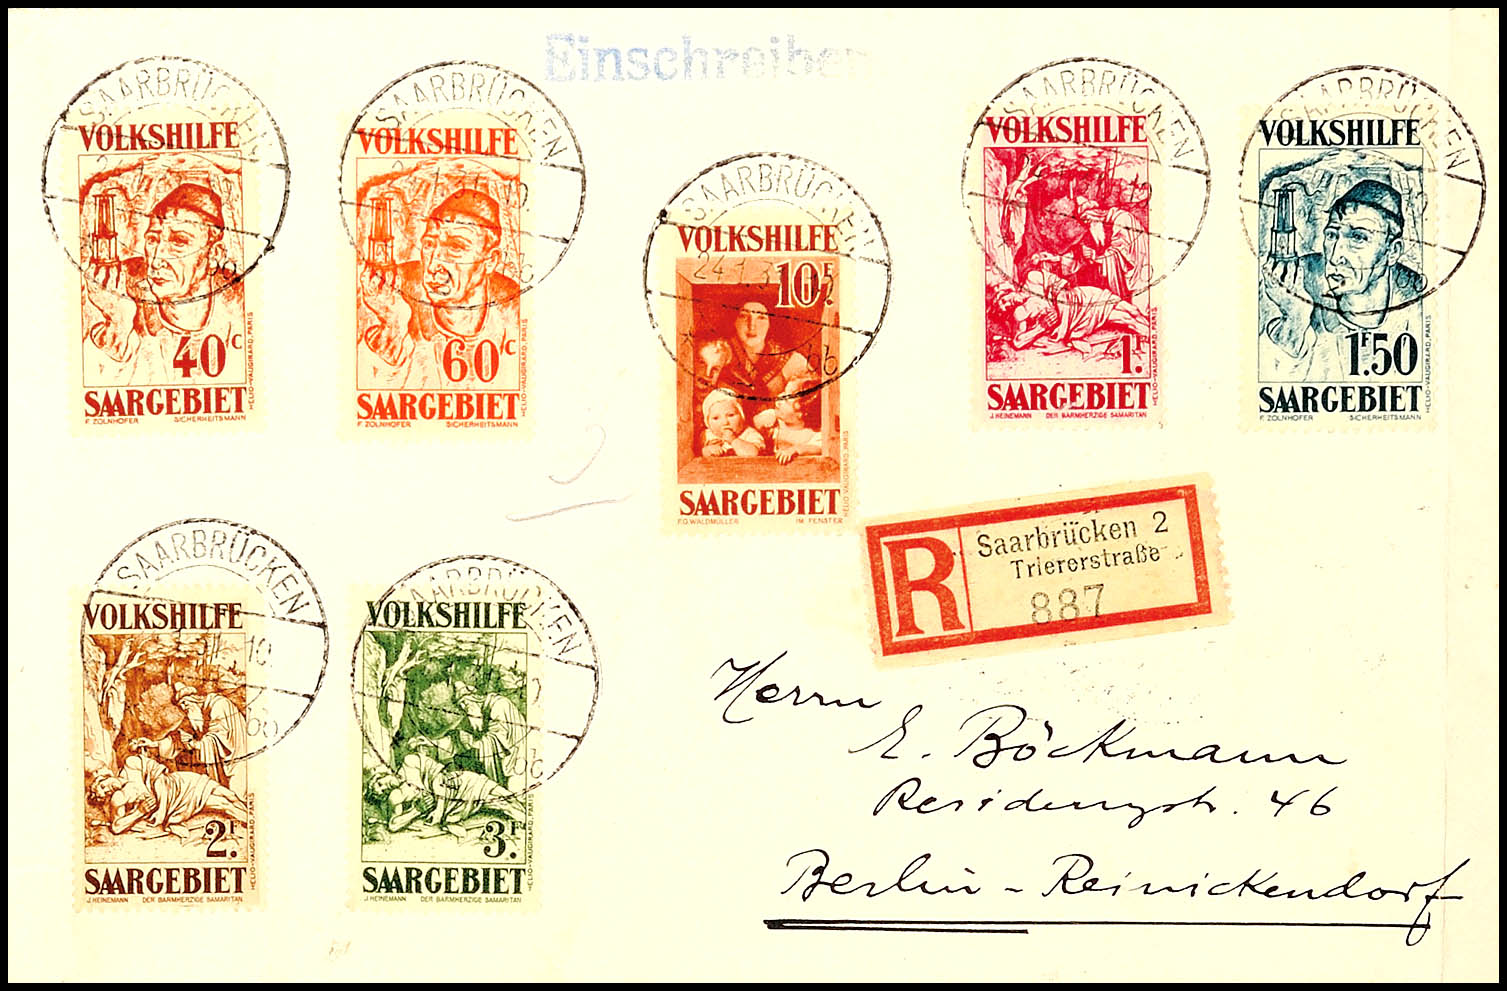 Einschreiben
SAARBRÜCKEN
VOLKSHILFE
40/c
SAARGEBIET
F. ZOLNHOFER SICHERHEITSMANN
HELIO-VAUGIRARD, PARIS
SAARBRÜCKEN
VOLKSHILFE
60/c
SAARGEBIET
F. ZOLNHOFER SICHERHEITSMANN
HELIO-VAUGIRARD, PARIS
SAARBRÜCKEN
VOLKSHILFE
24.1.3
10F.
SAARGEBIET
F.G. WALDMÜLLER IM FENSTER
HELIO-VAUGIRARD, PARIS
SAARBRÜCKEN
VOLKSHILFE
1F.
SAARGEBIET
J. HEINEMANN DER BARMHERZIGE SAMARITAN
HELIO-VAUGIRARD, PARIS
SAARBRÜCKEN
VOLKSHILFE
1F50
SAARGEBIET
F. ZOLNHOFER SICHERHEITSMANN
HELIO-VAUGIRARD, PARIS
R
Saarbrücken 2
Triererstraße
887
SAARBRÜCKEN
VOLKSHILFE
2F.
SAARGEBIET
J. HEINEMANN DER BARMHERZIGE SAMARITAN
HELIO-VAUGIRARD, PARIS
SAARBRÜCKEN
VOLKSHILFE
3F.
SAARGEBIET
J. HEINEMANN DER BARMHERZIGE SAMARITAN
HELIO-VAUGIRARD, PARIS
Herrn
E. Böckmann
Residenzstr. 46
Berlin - Reinickendorf